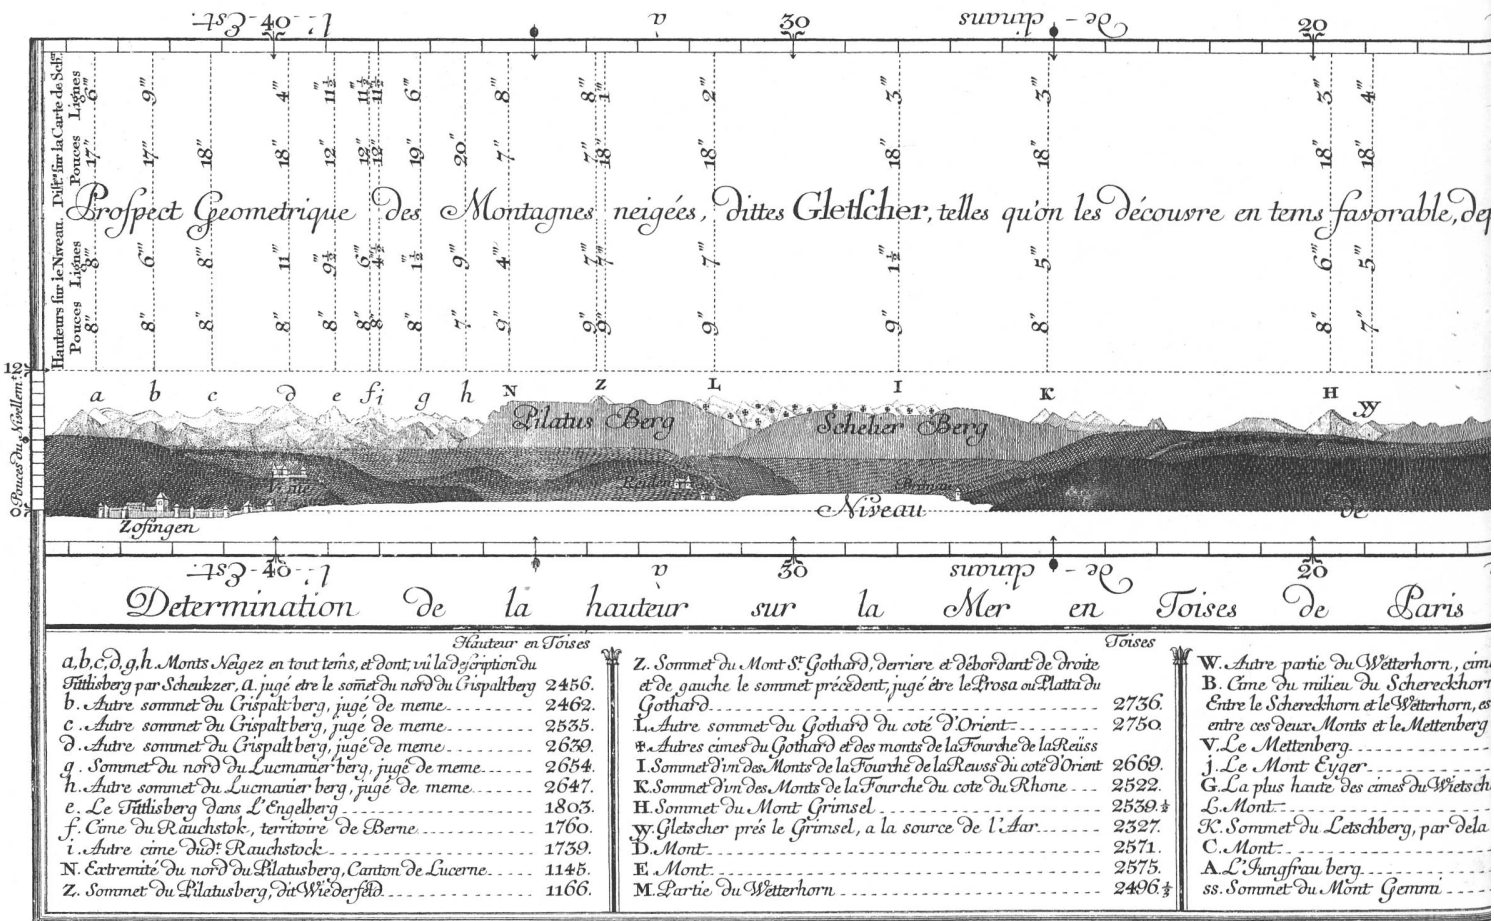 l'-Est. -40- a 30 de - clinans 20
Hauteurs sur le Niveau. Dist.ˢ sur la Carte de Sch.ʳ
Pouces Lignes Pouces Lignes
6''' 9''' 4''' 11½''' 11½''' 11½''' 6''' 8''' 8''' 1''' 2''' 3''' 3''' 3''' 4'''
17'' 17'' 18'' 18'' 12'' 12'' 12'' 19'' 20'' 7'' 7'' 18'' 18'' 18'' 18'' 18'' 18''
Prospect Geometrique des Montagnes neigées, dittes Gletscher, telles qu'on les découvre en tems favorable, dep
8''' 6''' 8''' 11''' 9½''' 6''' 4½''' 1½''' 9''' 4''' 7''' 7''' 7''' 1½''' 5''' 6''' 5'''
8'' 8'' 8'' 8'' 8'' 8'' 8'' 8'' 7'' 9'' 9'' 9'' 9'' 9'' 8'' 8'' 7''
12
Pouces du Nivellemt.
0
a b c d e f i g h N Z L I K H W
Pilatus Berg Schelier Berg
Reiden
Zofingen
Niveau de
l'-Est. -40- a 30 de - clinans 20
Determination de la hauteur sur la Mer en Toises de Paris
Hauteur en Toises
a,b,c,d,g,h. Monts Neigez en tout tems, et dont, vû la description du
Tittlisberg par Scheukzer, a. jugé etre le somet du nord du Crispaltberg 2456.
b. Autre sommet du Crispalt berg, jugé de meme 2462.
c. Autre sommet du Crispalt berg, jugé de meme 2535.
d. Autre sommet du Crispalt berg, jugé de meme 2639.
g. Sommet du nord du Lucmanier berg, jugé de meme 2654.
h. Autre sommet du Lucmanier berg, jugé de meme 2647.
e. Le Tittlisberg dans L'Engelberg 1803.
f. Cime du Rauchstok, territoire de Berne 1760.
i. Autre cime dudt. Rauchstock 1739.
N. Extremité du nord du Pilatusberg, Canton de Lucerne 1145.
Z. Sommet du Pilatusberg, dit Wiederfeld 1166.
Toises
Z. Sommet du Mont St. Gothard, derriere et débordant de droite
et de gauche le sommet précedent, jugé étre le Prosa ou Platta du
Gothard 2736.
L. Autre sommet du Gothard du coté d'Orient 2750.
✠ Autres cimes du Gothard et des monts de la Fourche de la Reüss
I. Sommet d'vn des Monts de la Fourche de la Reuss du coté d'Orient 2669.
K. Sommet d'vn des Monts de la Fourche du cote du Rhone 2522.
H. Sommet du Mont Grimsel 2539.½
W. Gletscher prés le Grimsel, a la source de l'Aar 2327.
D. Mont 2571.
E. Mont 2575.
M. Partie du Wetterhorn 2496⅓
W. Autre partie du Wetterhorn, cim
B. Cime du milieu du Schereckhorn
Entre le Schereckhorn et le Wetterhorn, es
entre ces deux Monts et le Mettenberg
V. Le Mettenberg
j. Le Mont Eyger
G. La plus haute des cimes du Wietsch
L. Mont
K. Sommet du Letschberg, par dela
C. Mont
A. L'Jungfrau berg
ss. Sommet du Mont Gemmi